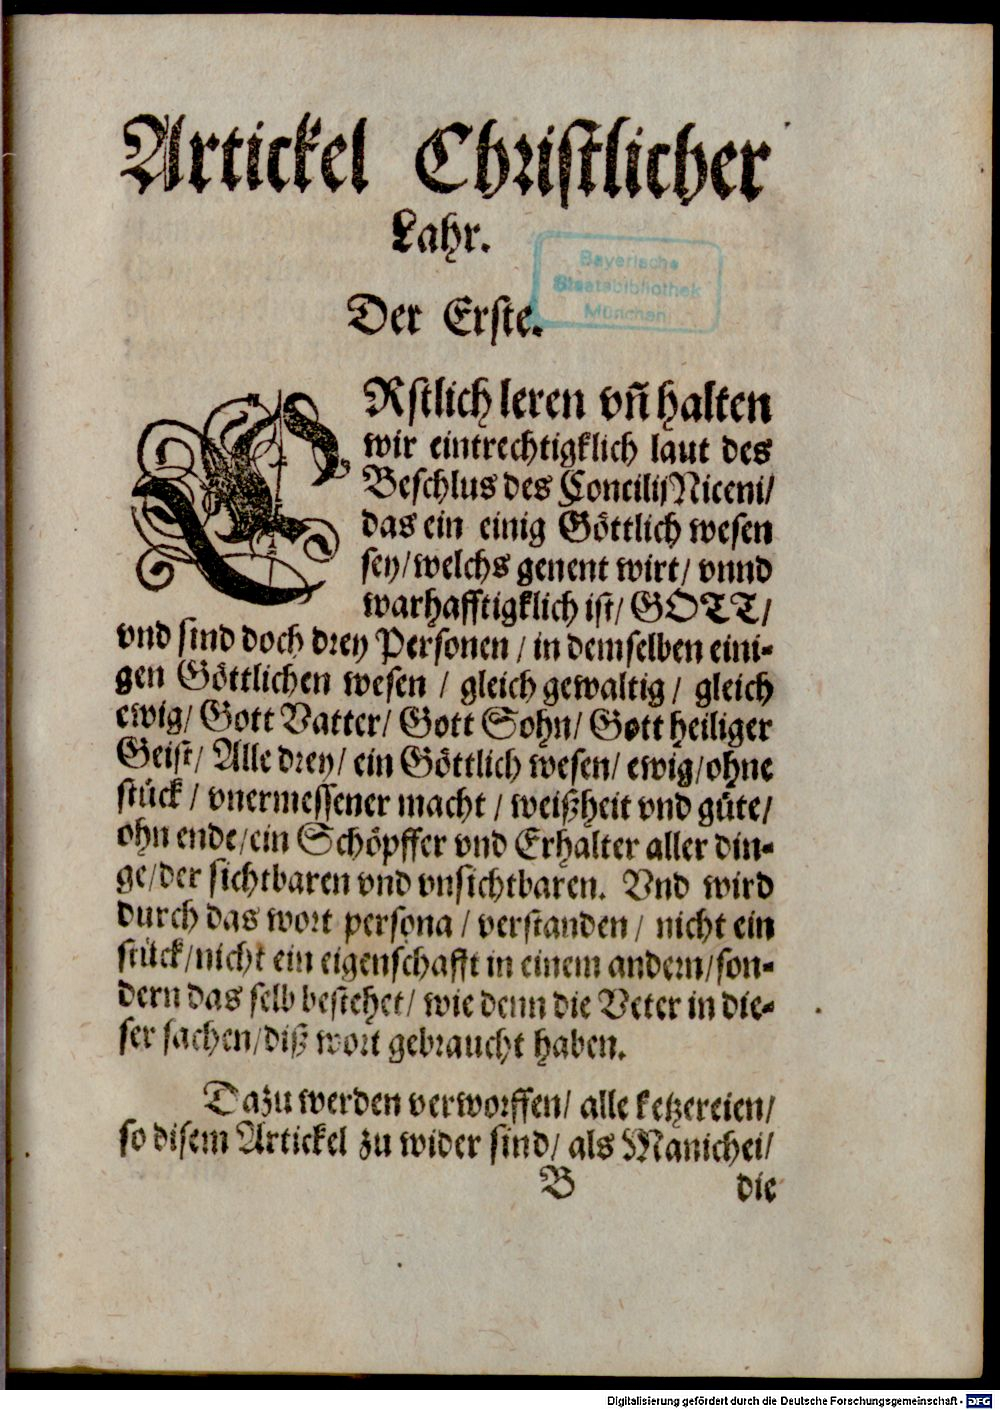 Artickel Christlicher
Lahr.
Bayerische
Staatsbibliothek
München
Der Erste.
ERstlich leren vñ halten
wir eintrechtigklich laut des
Beschlus des Concilij Niceni/
das ein einig Göttlich wesen
sey/welchs genent wirt/ vnnd
warhafftigklich ist/ GOTT/
vnd sind doch drey Personen / in demselben eini-
gen Göttlichen wesen / gleich gewaltig / gleich
ewig/ Gott Vatter/ Gott Sohn/ Gott heiliger
Geist/ Alle drey/ ein Göttlich wesen/ ewig/ohne
stück / vnermessener macht / weißheit vnd güte/
ohn ende/ein Schöpffer vnd Erhalter aller din-
ge/der sichtbaren vnd vnsichtbaren. Vnd wird
durch das wort persona / verstanden / nicht ein
stück/nicht ein eigenschafft in einem andern/son-
dern das selb bestehet/ wie denn die Veter in die-
ser sachen/diß wort gebraucht haben.
Dazu werden verworffen/ alle ketzereien/
so disem Artickel zu wider sind/ als Manichei/
B die
Digitalisierung gefördert durch die Deutsche Forschungsgemeinschaft - DFG